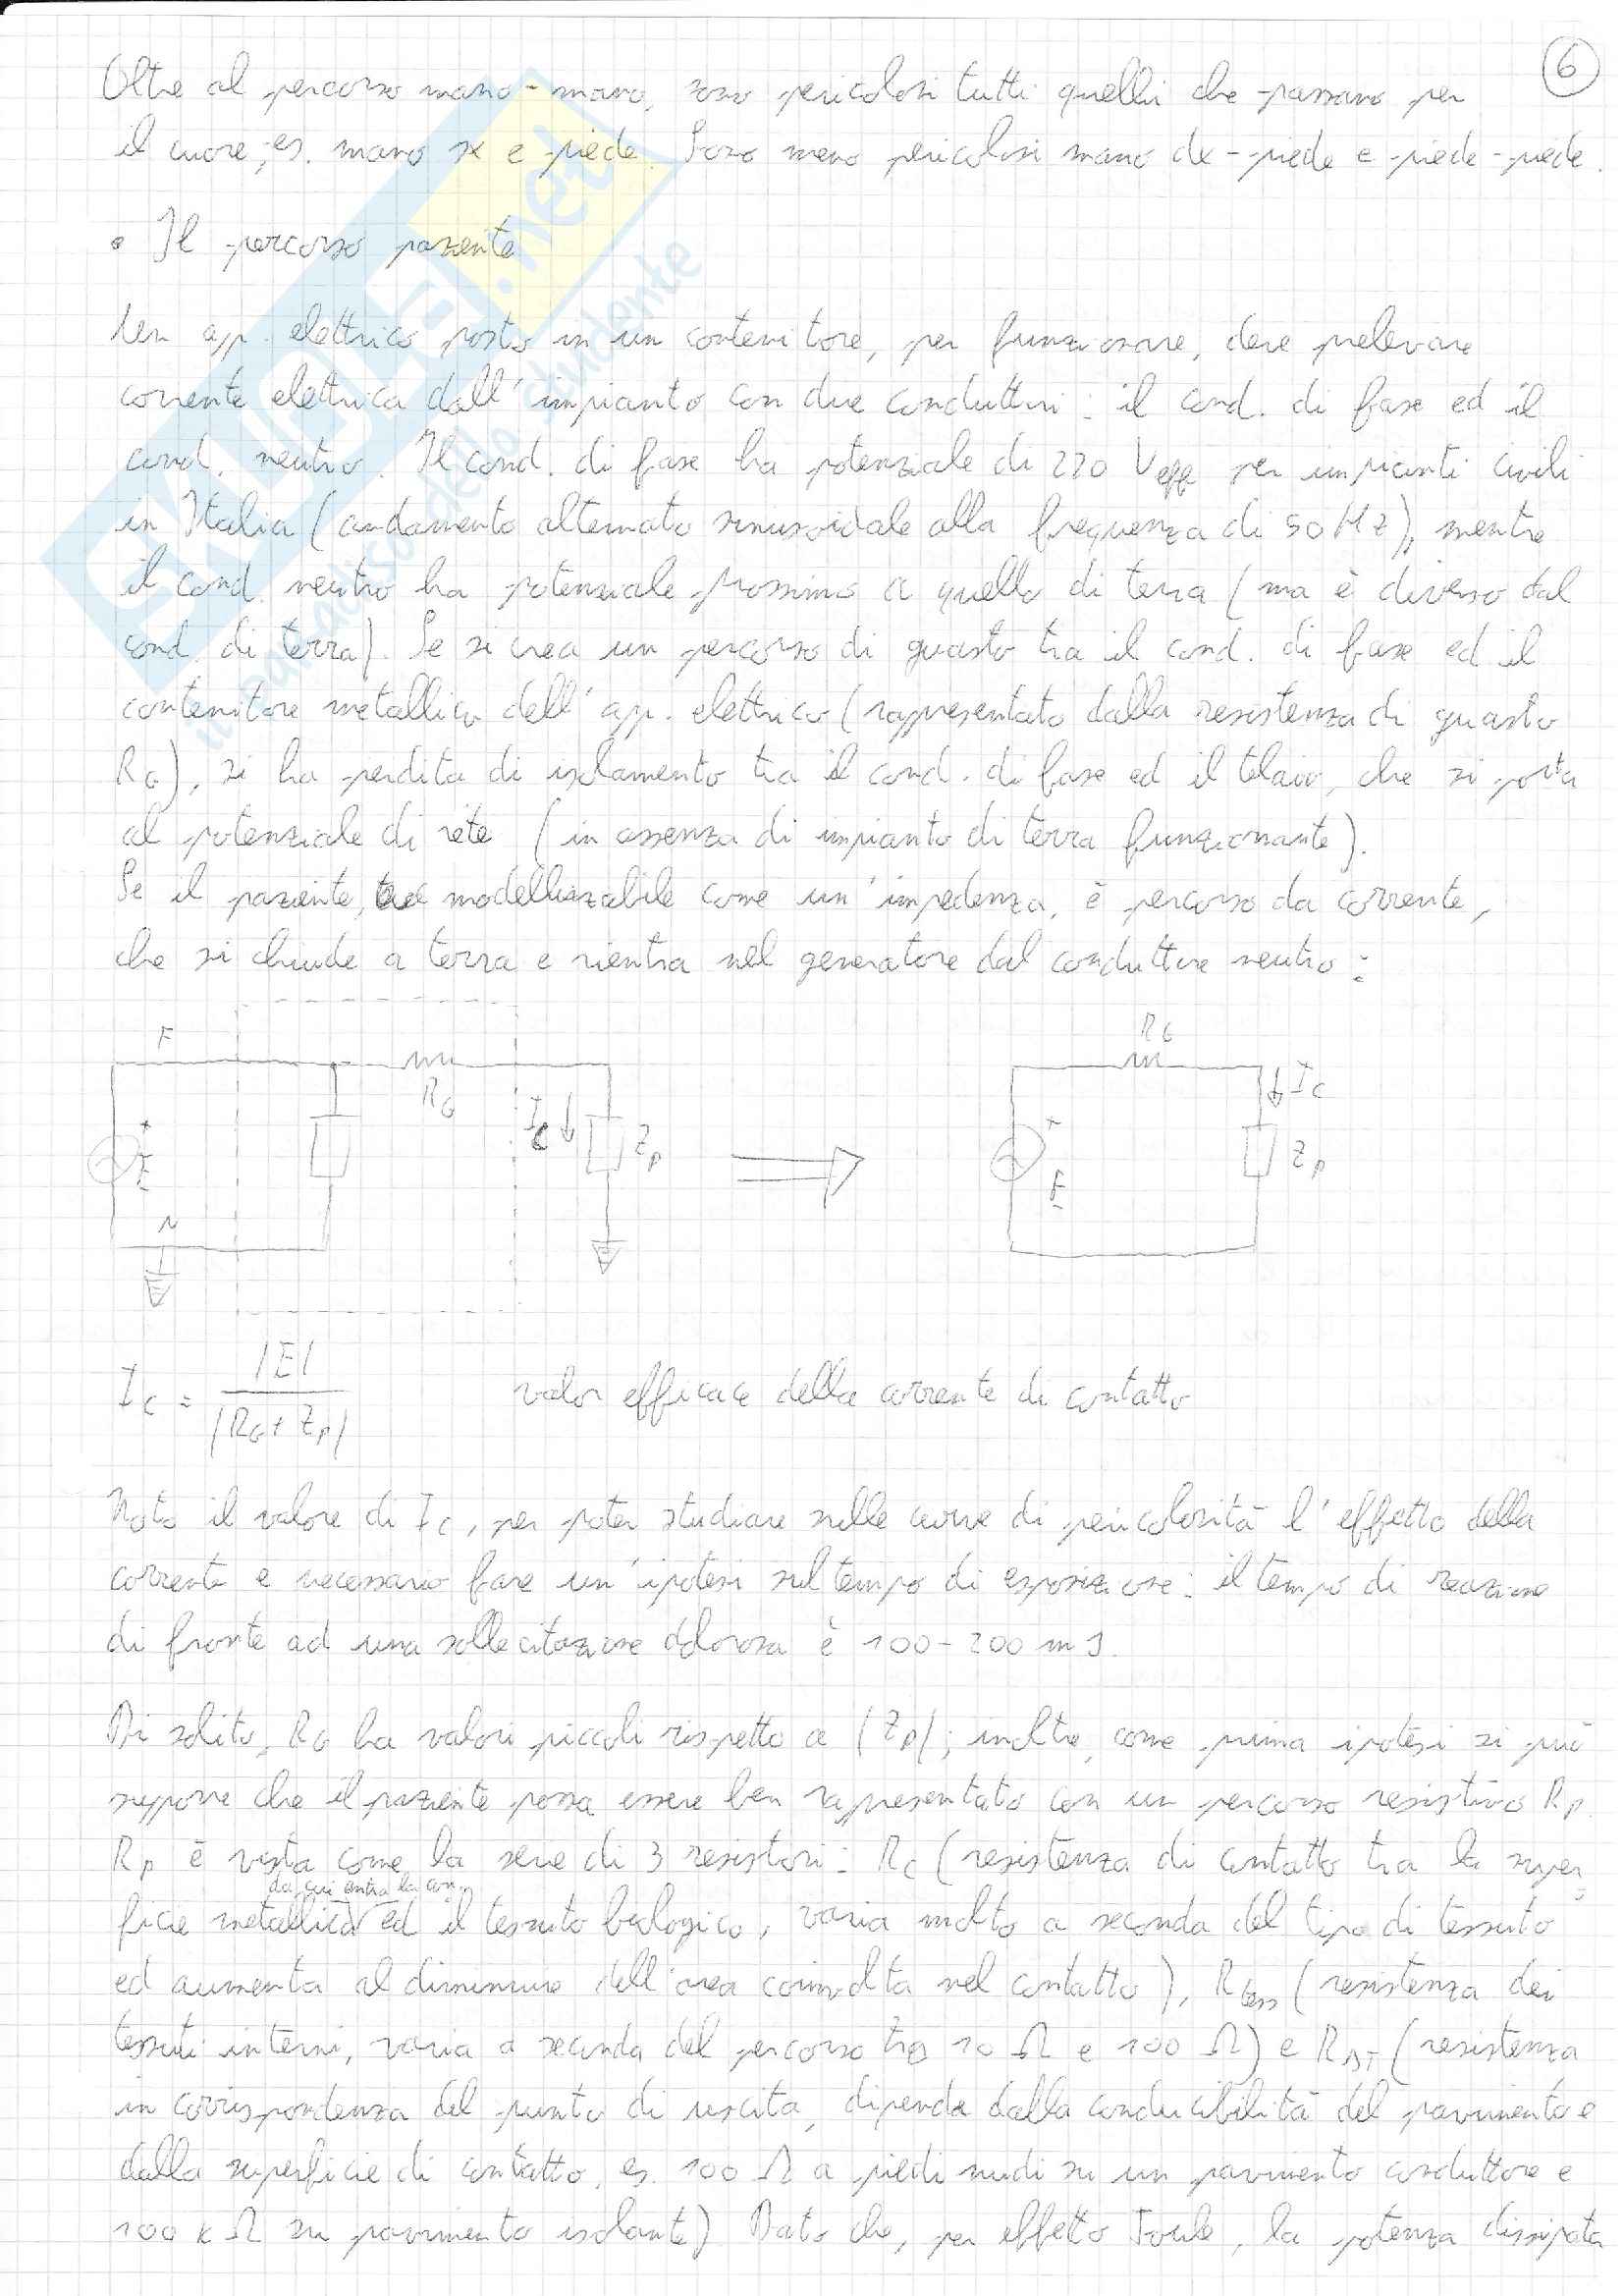 6
Oltre al percorso mano-mano, sono pericolosi tutti quelli che passano per
il cuore, es. mano sx e piede. Sono meno pericolosi mano dx-piede e piede-piede.
• Il percorso paziente
Un app. elettrico posto in un contenitore, per funzionare, deve prelevare
corrente elettrica dall'impianto con due conduttori: il cond. di fase ed il
cond. neutro. Il cond. di fase ha potenziale di 220 Veff per impianti civili
in Italia (andamento alternato sinusoidale alla frequenza di 50 Hz), mentre
il cond. neutro ha potenziale prossimo a quello di terra (ma è diverso dal
cond. di terra). Se si crea un percorso di guasto tra il cond. di fase ed il
contenitore metallico dell'app. elettrico (rappresentato dalla resistenza di guasto
RG), si ha perdita di isolamento tra il cond. di fase ed il telaio, che si porta
al potenziale di rete (in assenza di impianto di terra funzionante).
Se il paziente, modellizzabile come un'impedenza, è percorso da corrente,
che si chiude a terra e rientra nel generatore dal conduttore neutro:
F
RG
IC
ZP
+
E
-
N
RG
IC
ZP
+
E
-
IC = |E| / |RG + ZP|
valor efficace della corrente di contatto
Noto il valore di IC, per poter studiare sulle curve di pericolosità l'effetto della
corrente è necessario fare un'ipotesi sul tempo di esposizione: il tempo di reazione
di fronte ad una sollecitazione dolorosa è 100-200 ms.
Di solito, RG ha valori piccoli rispetto a |ZP|; inoltre, come prima ipotesi si può
supporre che il paziente possa essere ben rappresentato con un percorso resistivo RP.
RP è vista come la serie di 3 resistori: RC (resistenza di contatto tra la super
da cui entra la corr.
ficie metallica ed il tessuto biologico, varia molto a seconda del tipo di tessuto
ed aumenta al diminuire dell'area coinvolta nel contatto), Rtess (resistenza dei
tessuti interni, varia a seconda del percorso tra 10 Ω e 100 Ω) e RBT (resistenza
in corrispondenza del punto di uscita, dipende dalla conducibilità del pavimento e
dalla superficie di contatto, es. 100 Ω a piedi nudi su un pavimento conduttore e
100 kΩ su pavimento isolante). Dato che, per effetto Joule, la potenza dissipata